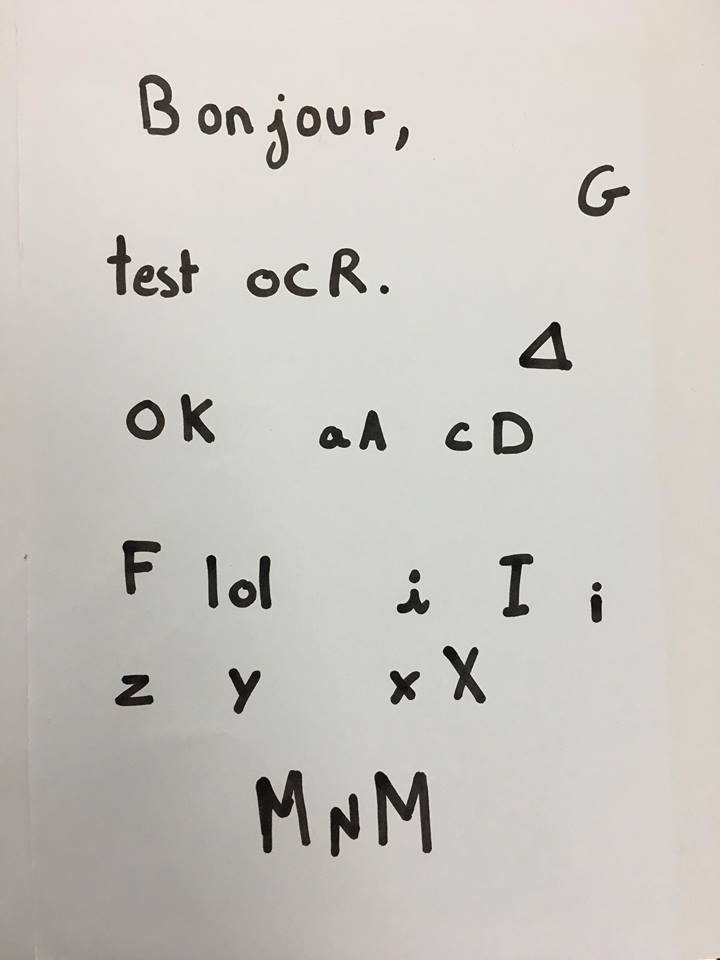 Bonjour,
G
test OCR.
Δ
OK aA cD
F lol i I i
z y x X
MNM